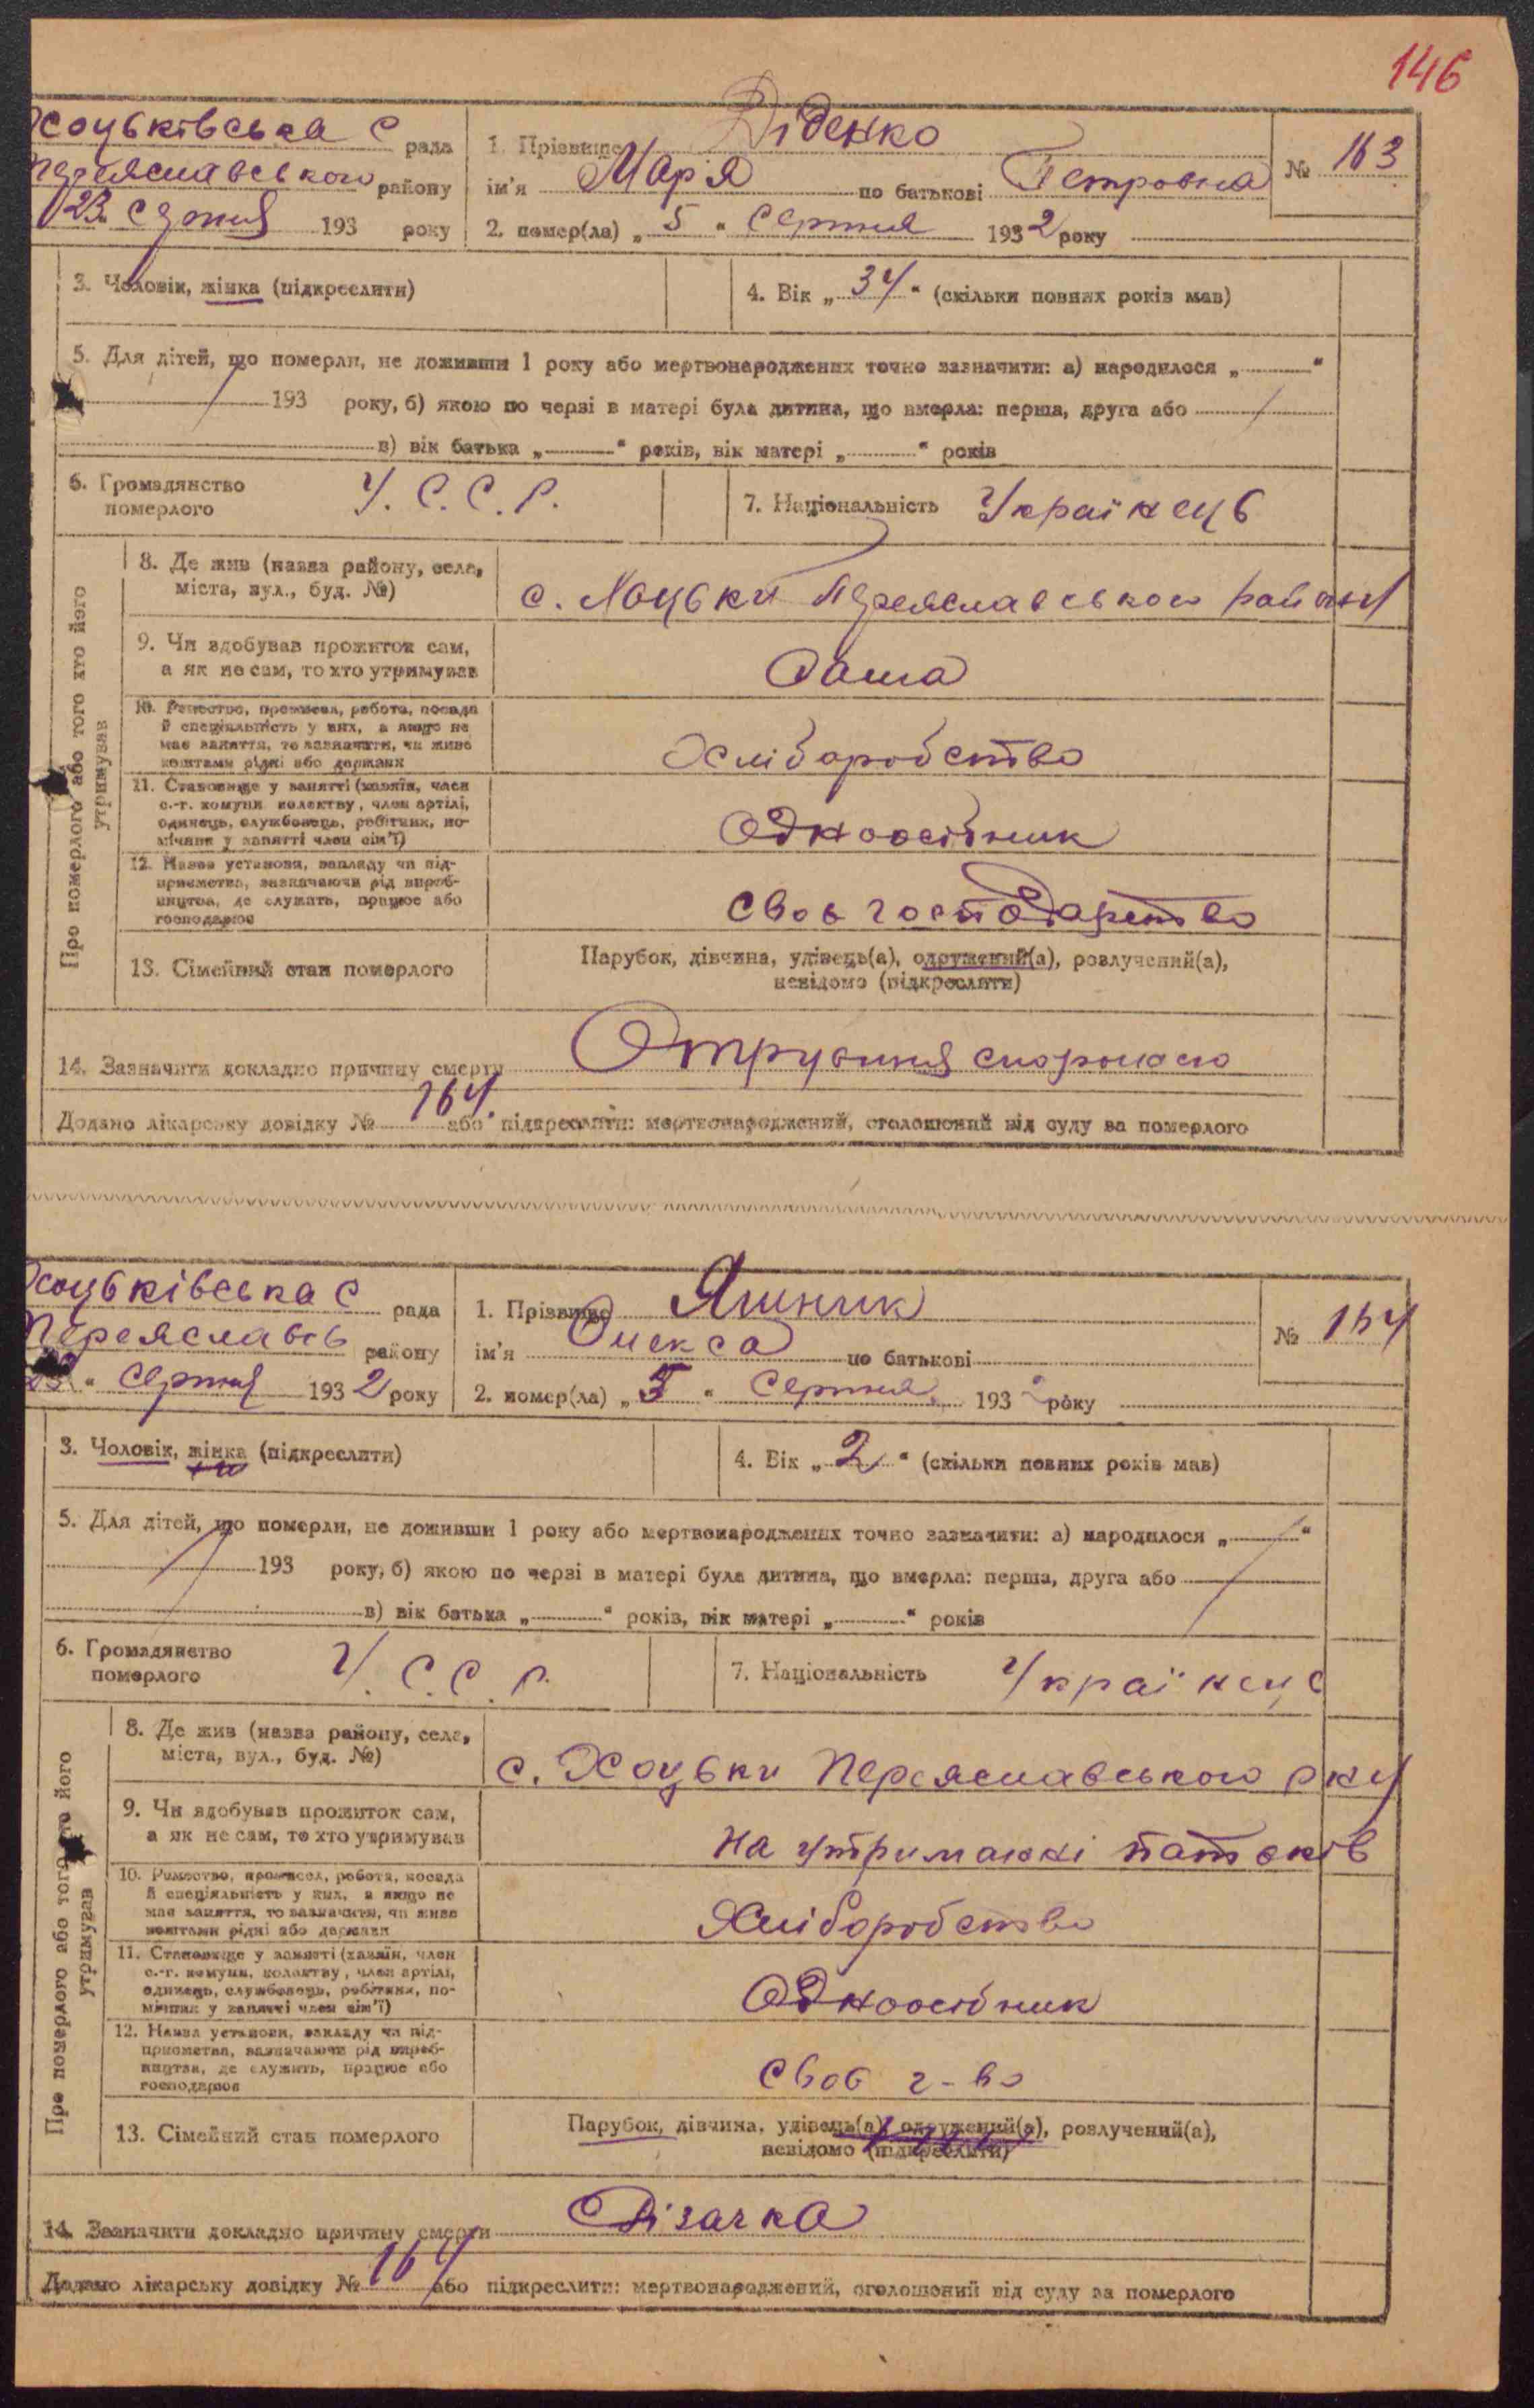 146
Хоцьківська С рада
Переяславського району
23 Серпня 193 року
1. Прізвище Діденко
ім'я Марія по батькові Петровна
№ 163
2. помер(ла) „ 5 " Серпня 1932 року
3. Чоловік, жінка (підкреслити)
4. Вік „ 34 " (скільки повних років мав)
5. Для дітей, що померли, не доживши 1 року або мертвонароджених точно зазначити: а) народилося „ "
193 року, б) якою по черзі в матері була дитина, що вмерла: перша, друга або
в) вік батька „ " років, вік матері „ " років
6. Громадянство
померлого
У. С. С. Р.
7. Національність Українець
Про померлого або того хто його
утримував
8. Де жив (назва району, села,
міста, вул., буд. №)
с. Хоцьки Переяславського району
9. Чи здобував прожиток сам,
а як не сам, то хто утримував
Сама
10. Ремество, промисел, робота, посада
й спеціяльність у них, а якщо не
має заняття, то зазначити, чи живе
коштами рідні або держави
Хліборобство
11. Становище у занятті (хазяїн, член
с.-г. комуни, колективу, член артілі,
одинець, службовець, робітник, по-
мічник у занятті член сім'ї)
Одноосібник
12. Назва установи, закладу чи під-
приємства, зазначаючи рід вироб-
ництва, де служить, працює або
господарює
Своє господарство
13. Сімейний стан померлого
Парубок, дівчина, удівець(а), одружений(а), розлучений(а),
невідомо (підкреслити)
14. Зазначити докладно причину смерти Отруєння
Додано лікарську довідку № 164. або підкреслити: мертвонароджений, оголошений від суду за померлого
Хоцьківська С рада
Переяславсь району
23 " Серпня 1932 року
1. Прізвище Яшник
ім'я Олекса по батькові
№ 164
2. помер(ла) „ 5 " Серпня 193 2 року
3. Чоловік, жінка (підкреслити)
4. Вік „ 2 " (скільки повних років мав)
5. Для дітей, що померли, не доживши 1 року або мертвонароджених точно зазначити: а) народилося „ "
193 року, б) якою по черзі в матері була дитина, що вмерла: перша, друга або
в) вік батька „ " років, вік матері „ " років
6. Громадянство
померлого
У. С. С. Р.
7. Національність Українець
Про померлого або того хто його
утримував
8. Де жив (назва району, села,
міста, вул., буд. №)
с. Хоцьки Переяславського р-ну
9. Чи здобував прожиток сам,
а як не сам, то хто утримував
на утриманні батьків
10. Ремество, промисел, робота, посада
й спеціяльність у них, а якщо не
має заняття, то зазначити, чи живе
коштами рідні або держави
Хліборобство
11. Становище у занятті (хазяїн, член
с.-г. комуни, колективу, член артілі,
одинець, службовець, робітник, по-
мічник у занятті член сім'ї)
Одноосібник
12. Назва установи, закладу чи під-
приємства, зазначаючи рід вироб-
ництва, де служить, працює або
господарює
Своє г-во
13. Сімейний стан померлого
Парубок, дівчина, удівець(а), одружений(а), розлучений(а),
невідомо (підкреслити)
14. Зазначити докладно причину смерти Різачка
Додано лікарську довідку № 164 або підкреслити: мертвонароджений, оголошений від суду за померлого